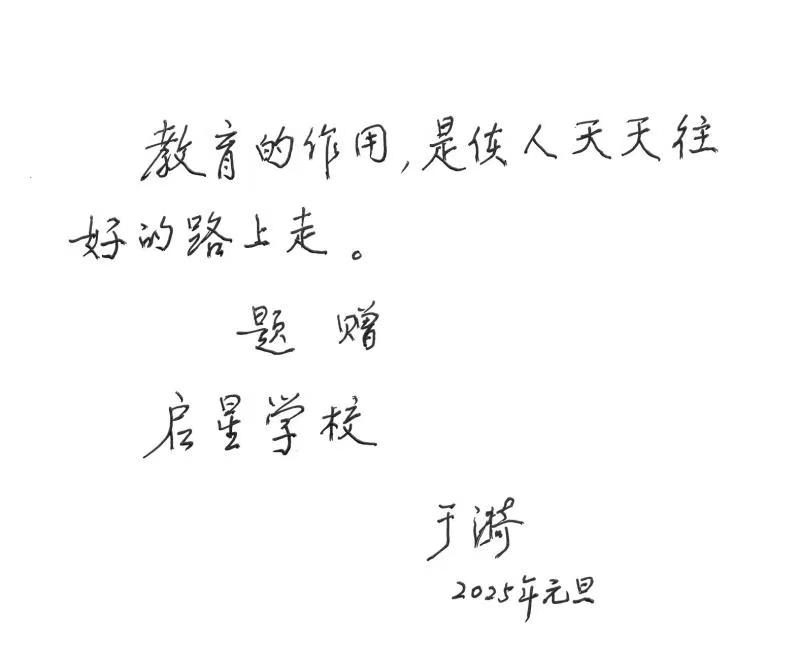 教育的作用,是使人天天往
好的路上走。
题 赠
启星学校
于漪
2025年元旦